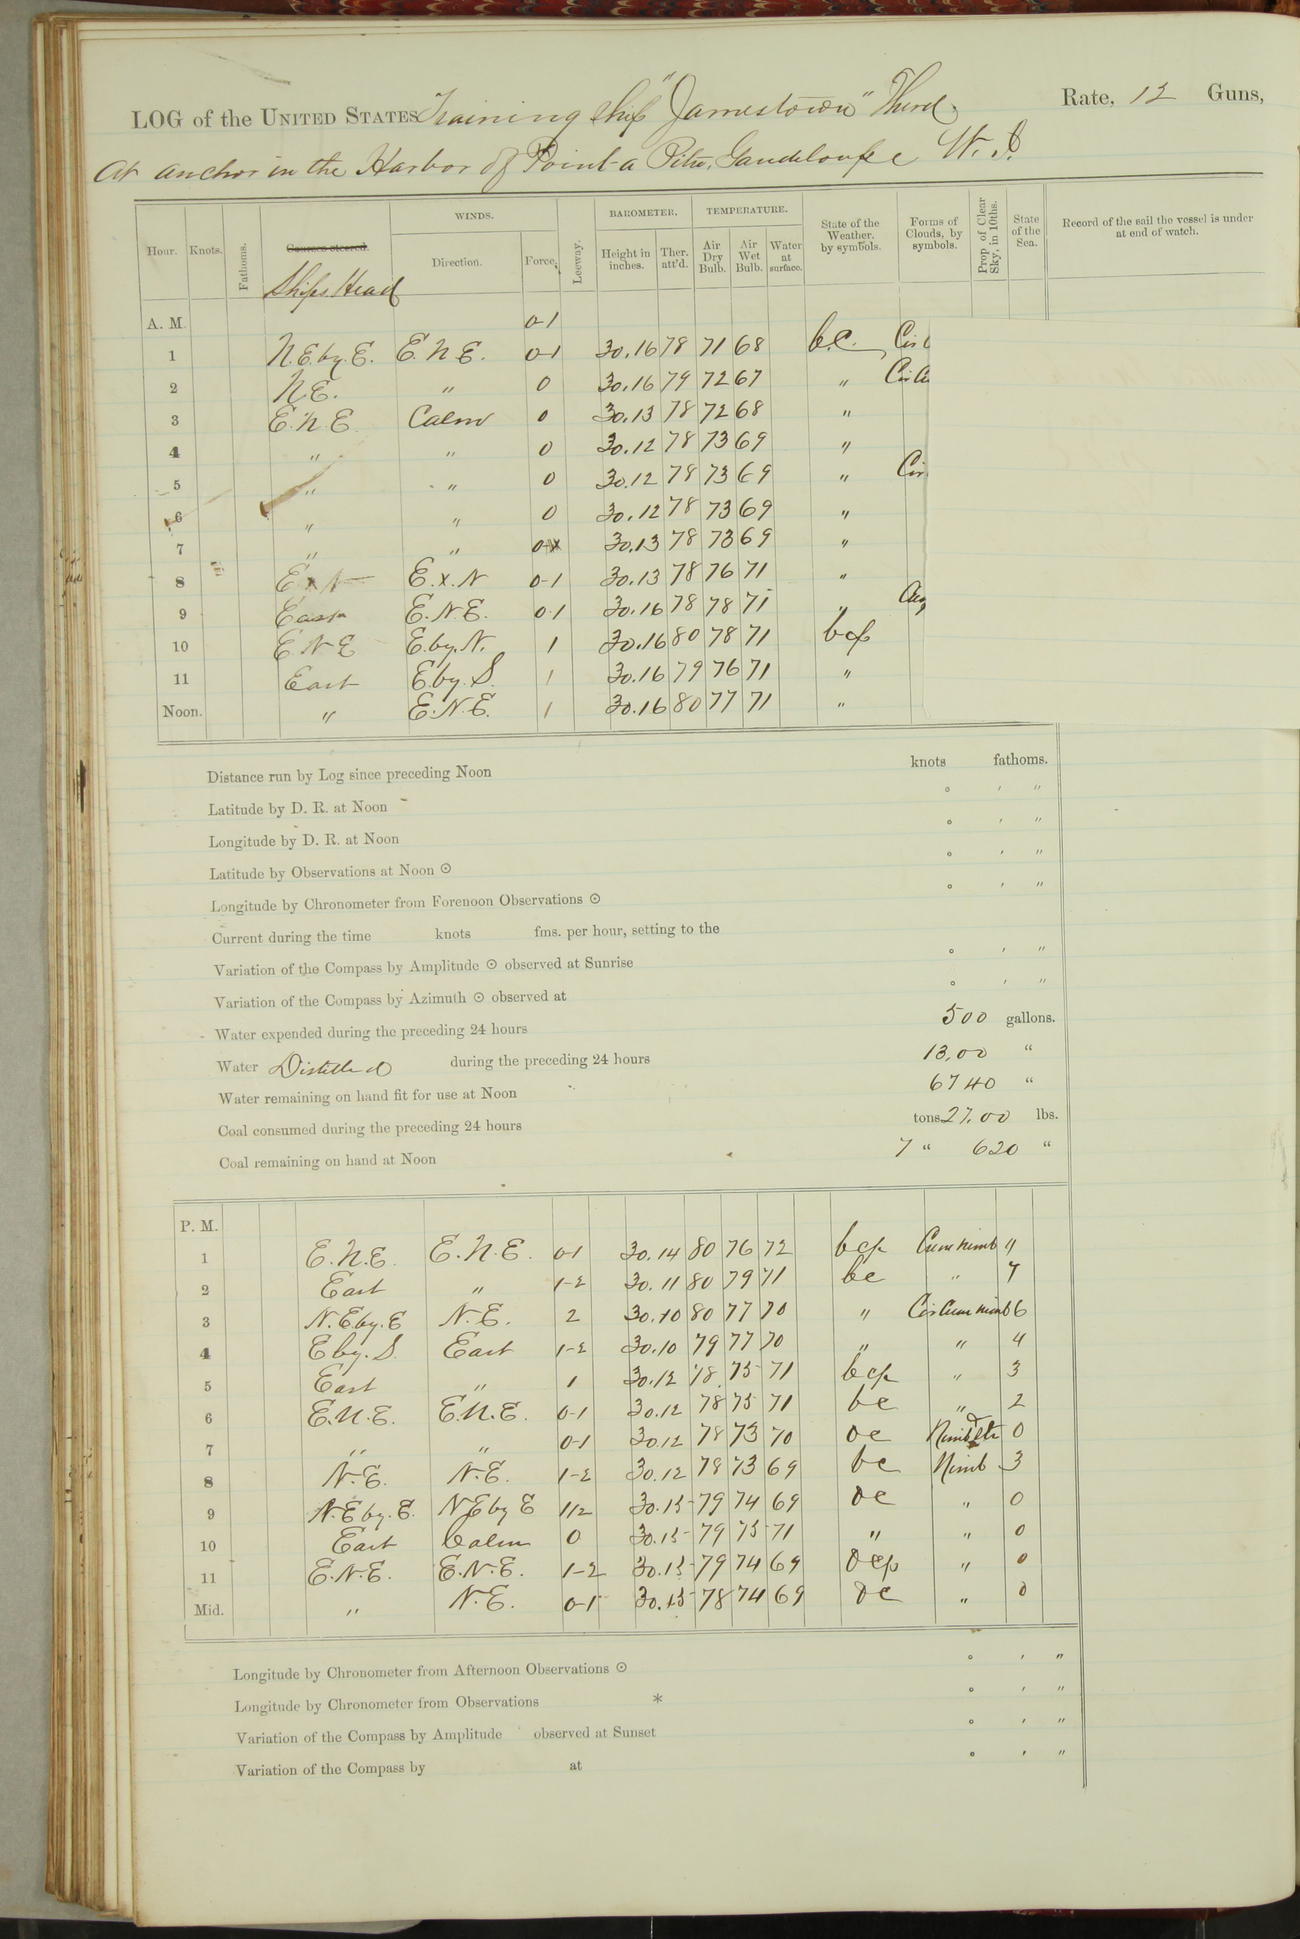 LOG of the UNITED STATES Training Ship "Jamestown" Third Rate, 12 Guns,
At anchor in the Harbor of Point-a Pitre, Gaudeloupe W. I.
Hour. Knots. Fathoms. Courses steered. WINDS. Leeway. BAROMETER. TEMPERATURE. State of the Weather, by symbols. Forms of Clouds, by symbols. Prop of Clear Sky, in 10ths. State of the Sea. Record of the sail the vessel is under at end of watch.
Ships Head Direction. Force. Height in inches. Ther. att'd. Air Dry Bulb. Air Wet Bulb. Water at surface.
A. M. 0-1
1 N.E. by. E. E. N E. 0-1 30.16 78 71 68 b.c. Cir
2 N.E. " 0 30.16 79 72 67 " Cir
3 E. N. E Calm 0 30.13 78 72 68 "
4 " " 0 30.12 78 73 69 "
5 " " 0 30.12 78 73 69 " Cir
6 " " 0 30.12 78 73 69 "
7 " " 30.13 78 73 69 "
8 E x N E. x. N 0-1 30.13 78 76 71 "
9 East E. N. E. 0-1 30.16 78 78 71 "
10 E N E E. by. N. 1 30.16 80 78 71 bcp
11 East E. by. S. 1 30.16 79 76 71 "
Noon. " E. N. E. 1 30.16 80 77 71 "
Distance run by Log since preceding Noon knots fathoms.
Latitude by D. R. at Noon ° ′ ″
Longitude by D. R. at Noon ° ′ ″
Latitude by Observations at Noon ☉ ° ′ ″
Longitude by Chronometer from Forenoon Observations ☉ ° ′ ″
Current during the time knots fms. per hour, setting to the
Variation of the Compass by Amplitude ☉ observed at Sunrise ° ′ ″
Variation of the Compass by Azimuth ☉ observed at ° ′ ″
Water expended during the preceding 24 hours 500 gallons.
Water Distilled during the preceding 24 hours 13,00 "
Water remaining on hand fit for use at Noon 6740 "
Coal consumed during the preceding 24 hours tons 27.00 lbs.
Coal remaining on hand at Noon 7 " 620 "
P. M.
1 E. N. E. E. N. E. 0-1 30.14 80 76 72 bcp Cum nimb "
2 East " 1-2 30.11 80 79 71 bc " 7
3 N. E by. E N. E. 2 30.10 80 77 70 " Cir Cum nimb 6
4 E by. S. East 1-2 30.10 79 77 70 " " 4
5 East " 1 30.12 78 75 71 bcp " 3
6 E. N. E. E. N. E. 0-1 30.12 78 75 71 bc " 2
7 " " 0-1 30.12 78 73 70 oc Nimb & Str 0
8 N. E. N. E. 1-2 30.12 78 73 69 bc Nimb 3
9 N. E by. E. N E by E 1/2 30.15 79 74 69 oc " 0
10 East Calm 0 30.15 79 75 71 " " 0
11 E. N. E. E. N. E. 1-2 30.15 79 74 69 ocp " 0
Mid. " N. E. 0-1 30.15 78 74 69 oc " 0
Longitude by Chronometer from Afternoon Observations ☉ ° ′ ″
Longitude by Chronometer from Observations * ° ′ ″
Variation of the Compass by Amplitude observed at Sunset ° ′ ″
Variation of the Compass by at ° ′ ″